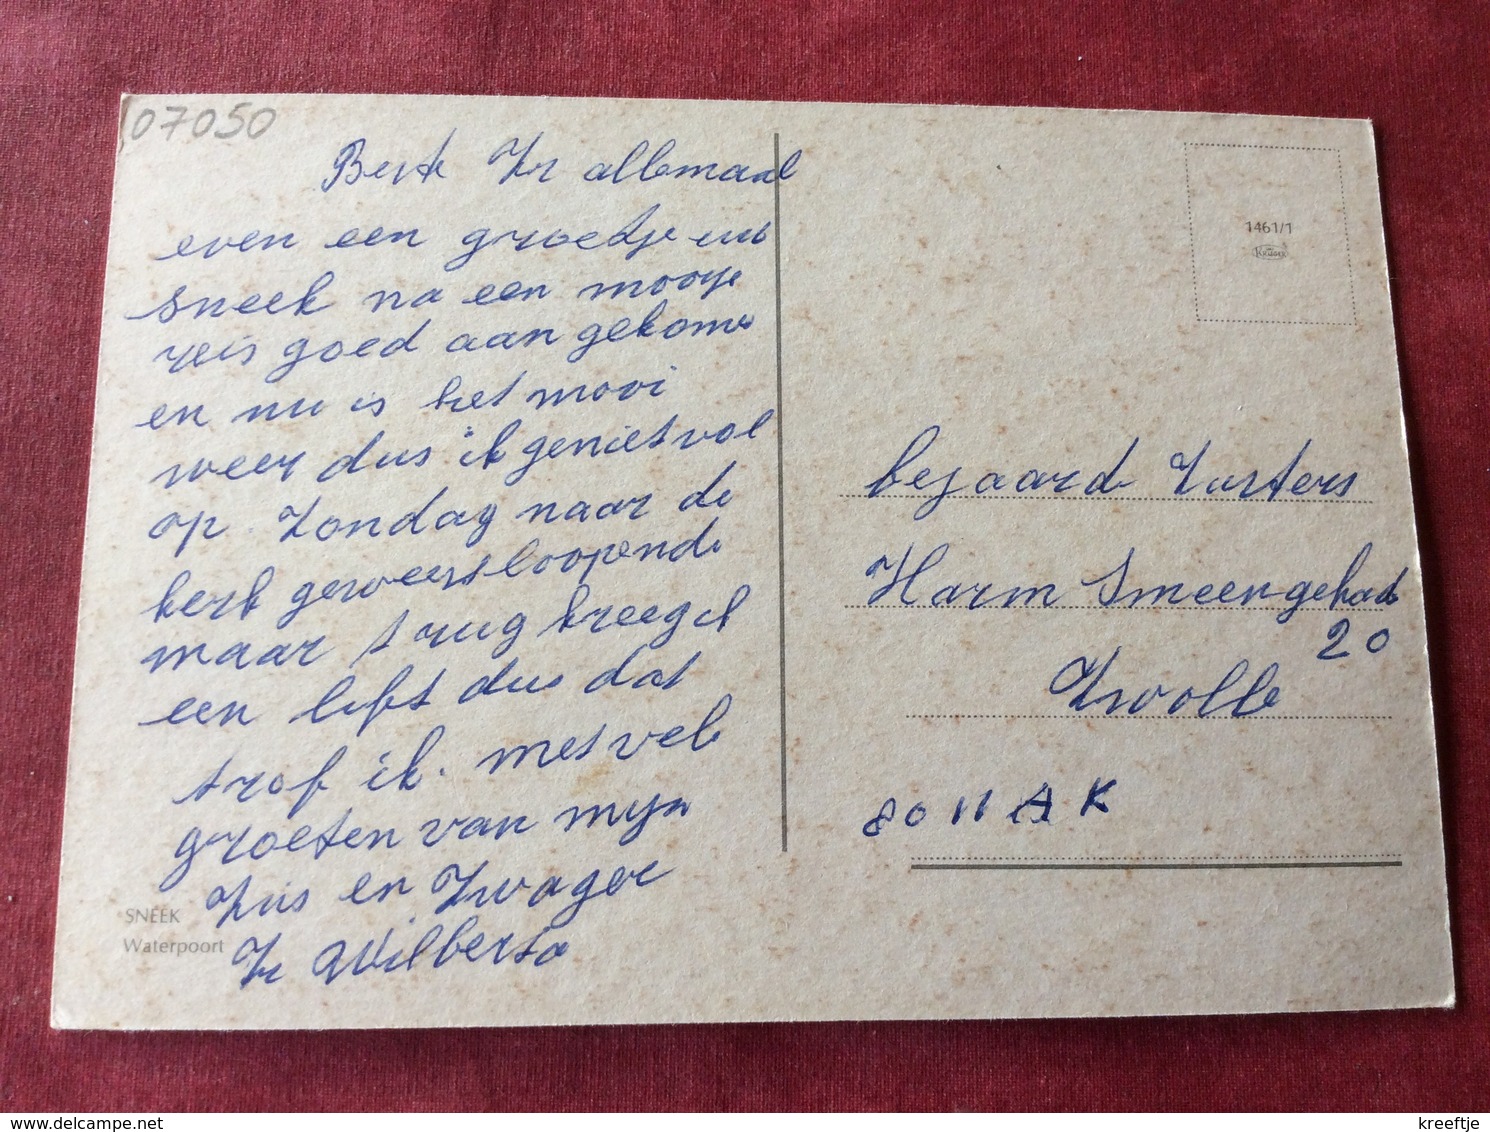 07050
Beste Zr allemaal
even een groetje uit
sneek na een mooye
reis goed aan gekomen
en nu is het mooi
weer dus ik geniet vol
op. Zondag naar de
kerk geweest loopende
maar trug kreeg ik
een lift dus dat
trof ik. met vele
groeten van myn
Zus en Zwager
Zr Wilberta
SNEEK
Waterpoort
1461/1
KRÜGER
bejaarde Zusters
Harm Smeengekade
20
Zwolle
8011 AK
kreeftje